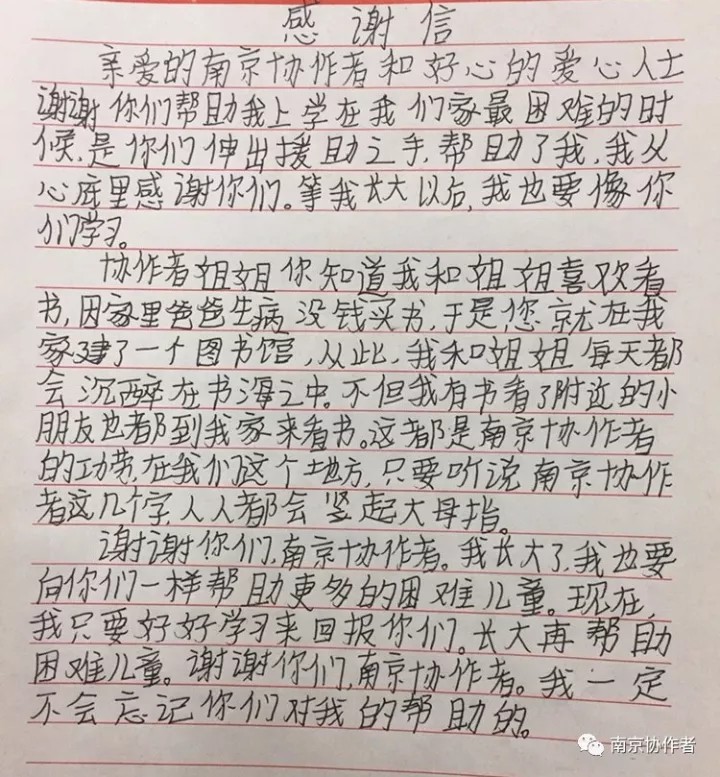 感谢信
亲爱的南京协作者和好心的爱心人士
谢谢你们帮助我上学在我们家最困难的时
候,是你们伸出援助之手,帮助了我,我从
心底里感谢你们。等我长大以后,我也要像你
们学习。
协作者姐姐你知道我和姐姐喜欢看
书,因家里爸爸生病没钱买书,于是,您就在我
家建了一个图书馆,从此,我和姐姐每天都
会沉醉在书海之中。不但我有书看了附近的小
朋友也都到我家来看书。这都是南京协作者
的功劳,在我们这个地方,只要听说南京协作
者这几个字,人人都会竖起大母指。
谢谢你们,南京协作者。我长大了,我也要
向你们一样帮助更多的困难儿童。现在,
我只要好好学习来回报你们。长大再帮助
困难儿童。谢谢你们,南京协作者。我一定
不会忘记你们对我的帮助的。
南京协作者